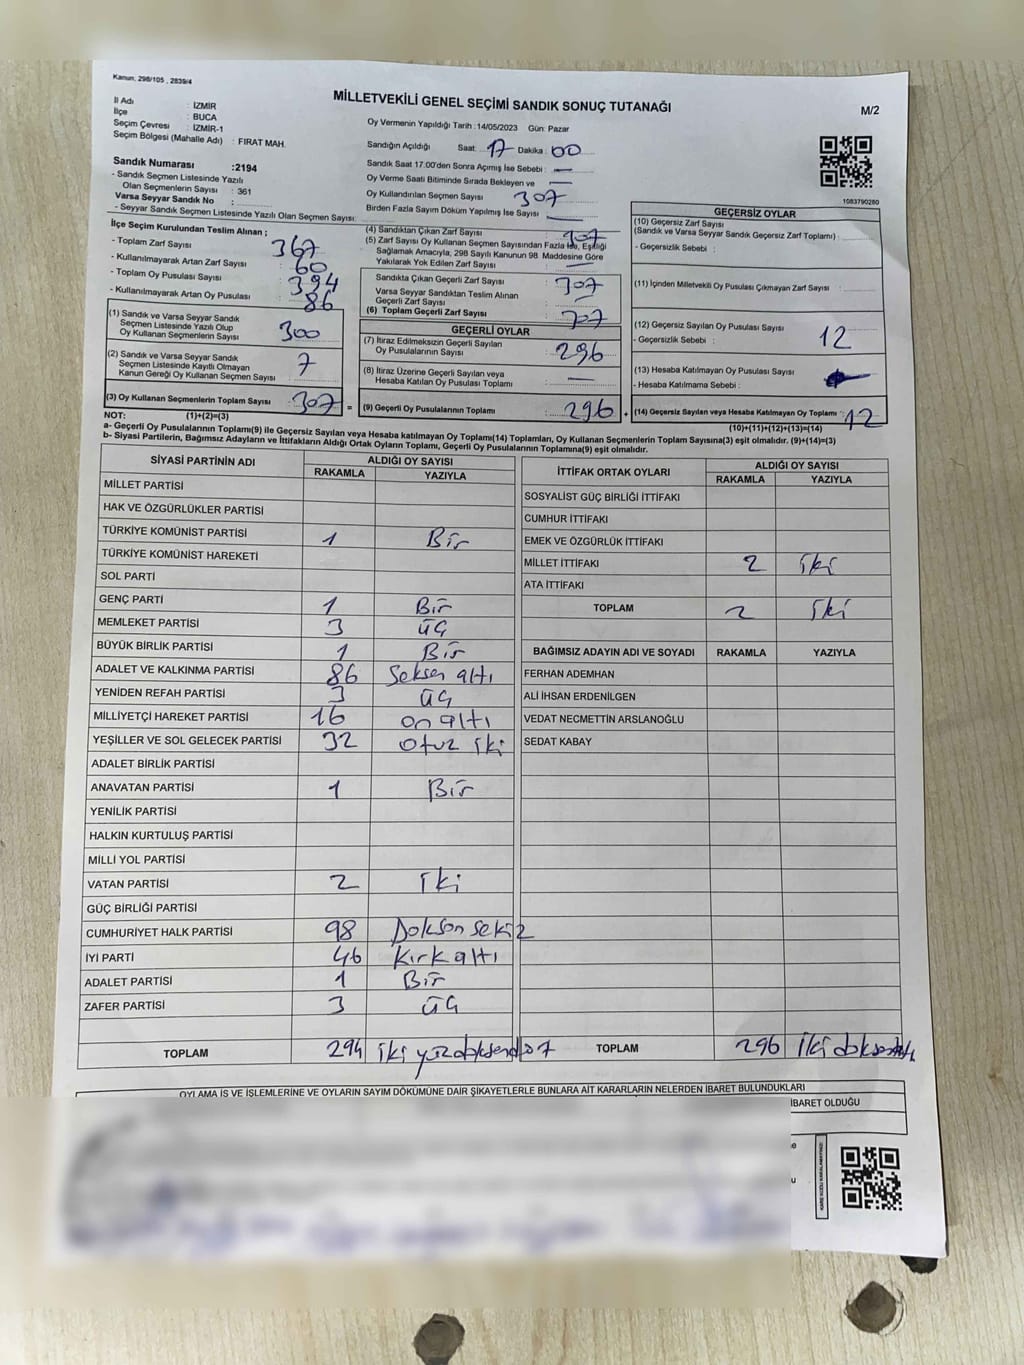 Kanun, 298/105 , 2839/4
MİLLETVEKİLİ GENEL SEÇİMİ SANDIK SONUÇ TUTANAĞI
M/2
İl Adı : İZMİR
İlçe : BUCA
Seçim Çevresi : İZMİR-1
Seçim Bölgesi (Mahalle Adı) : FIRAT MAH.
Sandık Numarası :2194
- Sandık Seçmen Listesinde Yazılı
Olan Seçmenlerin Sayısı : 361
Varsa Seyyar Sandık No :
- Seyyar Sandık Seçmen Listesinde Yazılı Olan Seçmen Sayısı:
Oy Vermenin Yapıldığı Tarih :14/05/2023 Gün: Pazar
Sandığın Açıldığı Saat: 17 Dakika : 00
Sandık Saat 17:00'den Sonra Açımış İse Sebebi : —
Oy Verme Saati Bitiminde Sırada Bekleyen ve —
Oy Kullandırılan Seçmen Sayısı 307
Birden Fazla Sayım Döküm Yapılmış İse Sayısı —
1083790280
İlçe Seçim Kurulundan Teslim Alınan ;
- Toplam Zarf Sayısı : 367
- Kullanılmayarak Artan Zarf Sayısı : 60
- Toplam Oy Pusulası Sayısı : 394
- Kullanılmayarak Artan Oy Pusulası : 86
(1) Sandık ve Varsa Seyyar Sandık
Seçmen Listesinde Yazılı Olup
Oy Kullanan Seçmenlerin Sayısı : 300
(2) Sandık ve Varsa Seyyar Sandık
Seçmen Listesinde Kayıtlı Olmayan
Kanun Gereği Oy Kullanan Seçmen Sayısı : 7
(3) Oy Kullanan Seçmenlerin Toplam Sayısı : 307
(4) Sandıktan Çıkan Zarf Sayısı : 307
(5) Zarf Sayısı Oy Kullanan Seçmen Sayısından Fazla İse, Eşitliği
Sağlamak Amacıyla, 298 Sayılı Kanunun 98 Maddesine Göre
Yakılarak Yok Edilen Zarf Sayısı : —
Sandıkta Çıkan Geçerli Zarf Sayısı : 307
Varsa Seyyar Sandıktan Teslim Alınan
Geçerli Zarf Sayısı : —
(6) Toplam Geçerli Zarf Sayısı : 307
GEÇERLİ OYLAR
(7) İtiraz Edilmeksizin Geçerli Sayılan
Oy Pusulalarının Sayısı : 296
(8) İtiraz Üzerine Geçerli Sayılan veya
Hesaba Katılan Oy Pusulası Toplamı : —
(9) Geçerli Oy Pusulalarının Toplamı : 296
GEÇERSİZ OYLAR
(10) Geçersiz Zarf Sayısı
(Sandık ve Varsa Seyyar Sandık Geçersiz Zarf Toplamı) :
- Geçersizlik Sebebi :
(11) İçinden Milletvekili Oy Pusulası Çıkmayan Zarf Sayısı :
(12) Geçersiz Sayılan Oy Pusulası Sayısı : 12
- Geçersizlik Sebebi :
(13) Hesaba Katılmayan Oy Pusulası Sayısı :
- Hesaba Katılmama Sebebi :
(14) Geçersiz Sayılan veya Hesaba Katılmayan Oy Toplamı : 12
NOT: (1)+(2)=(3) (10)+(11)+(12)+(13)=(14)
a- Geçerli Oy Pusulalarının Toplamı(9) ile Geçersiz Sayılan veya Hesaba katılmayan Oy Toplamı(14) Toplamları, Oy Kullanan Seçmenlerin Toplam Sayısına(3) eşit olmalıdır. (9)+(14)=(3)
b- Siyasi Partilerin, Bağımsız Adayların ve İttifakların Aldığı Ortak Oyların Toplamı, Geçerli Oy Pusulalarının Toplamına(9) eşit olmalıdır.
SİYASİ PARTİNİN ADI ALDIĞI OY SAYISI
RAKAMLA YAZIYLA
MİLLET PARTİSİ
HAK VE ÖZGÜRLÜKLER PARTİSİ
TÜRKİYE KOMÜNİST PARTİSİ 1 Bir
TÜRKİYE KOMÜNİST HAREKETİ
SOL PARTİ
GENÇ PARTİ 1 Bir
MEMLEKET PARTİSİ 3 üç
BÜYÜK BİRLİK PARTİSİ 1 Bir
ADALET VE KALKINMA PARTİSİ 86 Seksen altı
YENİDEN REFAH PARTİSİ 3 üç
MİLLİYETÇİ HAREKET PARTİSİ 16 on altı
YEŞİLLER VE SOL GELECEK PARTİSİ 32 otuz iki
ADALET BİRLİK PARTİSİ
ANAVATAN PARTİSİ 1 Bir
YENİLİK PARTİSİ
HALKIN KURTULUŞ PARTİSİ
MİLLİ YOL PARTİSİ
VATAN PARTİSİ 2 iki
GÜÇ BİRLİĞİ PARTİSİ
CUMHURİYET HALK PARTİSİ 98 Doksan sekiz
İYİ PARTİ 46 Kırk altı
ADALET PARTİSİ 1 Bir
ZAFER PARTİSİ 3 üç
TOPLAM 294 iki yüz
İTTİFAK ORTAK OYLARI ALDIĞI OY SAYISI
RAKAMLA YAZIYLA
SOSYALİST GÜÇ BİRLİĞİ İTTİFAKI
CUMHUR İTTİFAKI
EMEK VE ÖZGÜRLÜK İTTİFAKI
MİLLET İTTİFAKI 2 iki
ATA İTTİFAKI
TOPLAM 2 iki
BAĞIMSIZ ADAYIN ADI VE SOYADI RAKAMLA YAZIYLA
FERHAN ADEMHAN
ALİ İHSAN ERDENİLGEN
VEDAT NECMETTİN ARSLANOĞLU
SEDAT KABAY
TOPLAM 296 iki
OYLAMA İŞ VE İŞLEMLERİNE VE OYLARIN SAYIM DÖKÜMÜNE DAİR ŞİKAYETLERLE BUNLARA AİT KARARLARIN NELERDEN İBARET BULUNDUKLARI
İBARET OLDUĞU